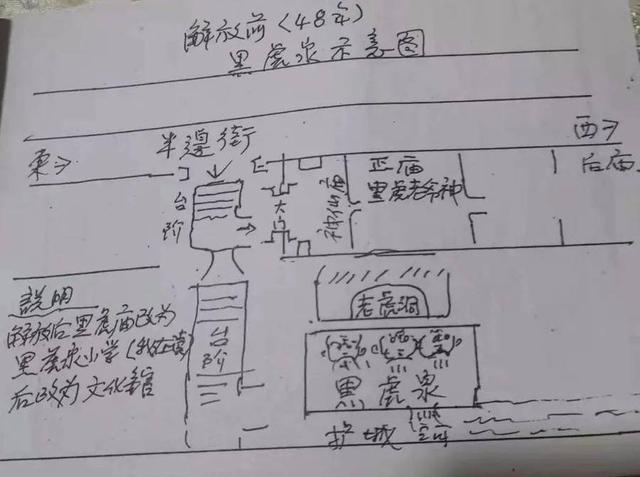 解放前（48年）
黑虎泉示意图
半邊街
东→
西→
台阶
大门
神仙庙
正庙
黑虎老爷神
后庙
老虎洞
説明
解放后黑虎庙改为
黑虎泉小学（我在读）
后改为文化舘
台阶
黑虎泉
护城